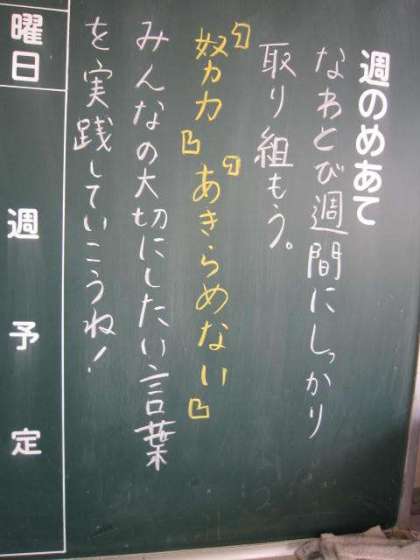 週のめあて
なわとび週間にしっかり
取り組もう。
『努力』『あきらめない』
みんなの大切にしたい言葉
を実践していこうね！
曜日
週予定